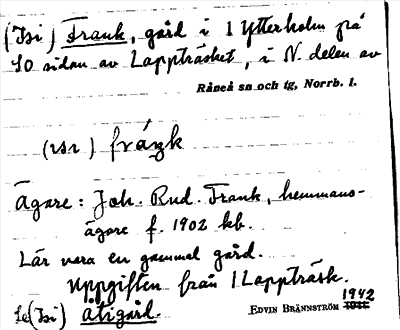 (Isi) Frank, gård i 1 Ytterholm på
SO sidan av Lappträsket, i N. delen av
Råneå sn och tg, Norrb. l.
(ısı) fráŋk
Ägare: Joh. Rud. Frank, hemmans-
ägare f. 1902 kb.
Lär vara en gammal gård.
Uppgiften från 1 Lappträsk.
Se (Isi) Åtigård.
EDVIN BRÄNNSTRÖM 1942